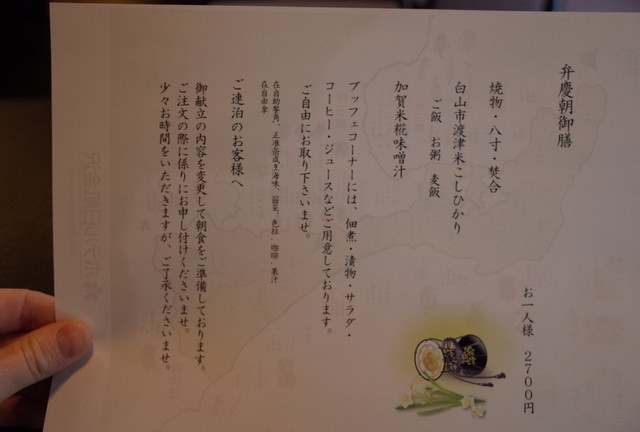 弁慶朝御膳
お一人様 2700円
焼物・八寸・焚合
白山市渡津米こしひかり
ご飯 お粥 麦飯
加賀米糀味噌汁
ブッフェコーナーには、佃煮・漬物・サラダ・
コーヒー・ジュースなどご用意しております。
ご自由にお取り下さいませ。
在自由拿
ご連泊のお客様へ
御献立の内容を変更して朝食をご準備しております。
ご注文の際に係りにお申し付けくださいませ。
少々お時間をいただきますが、ご了承くださいませ。